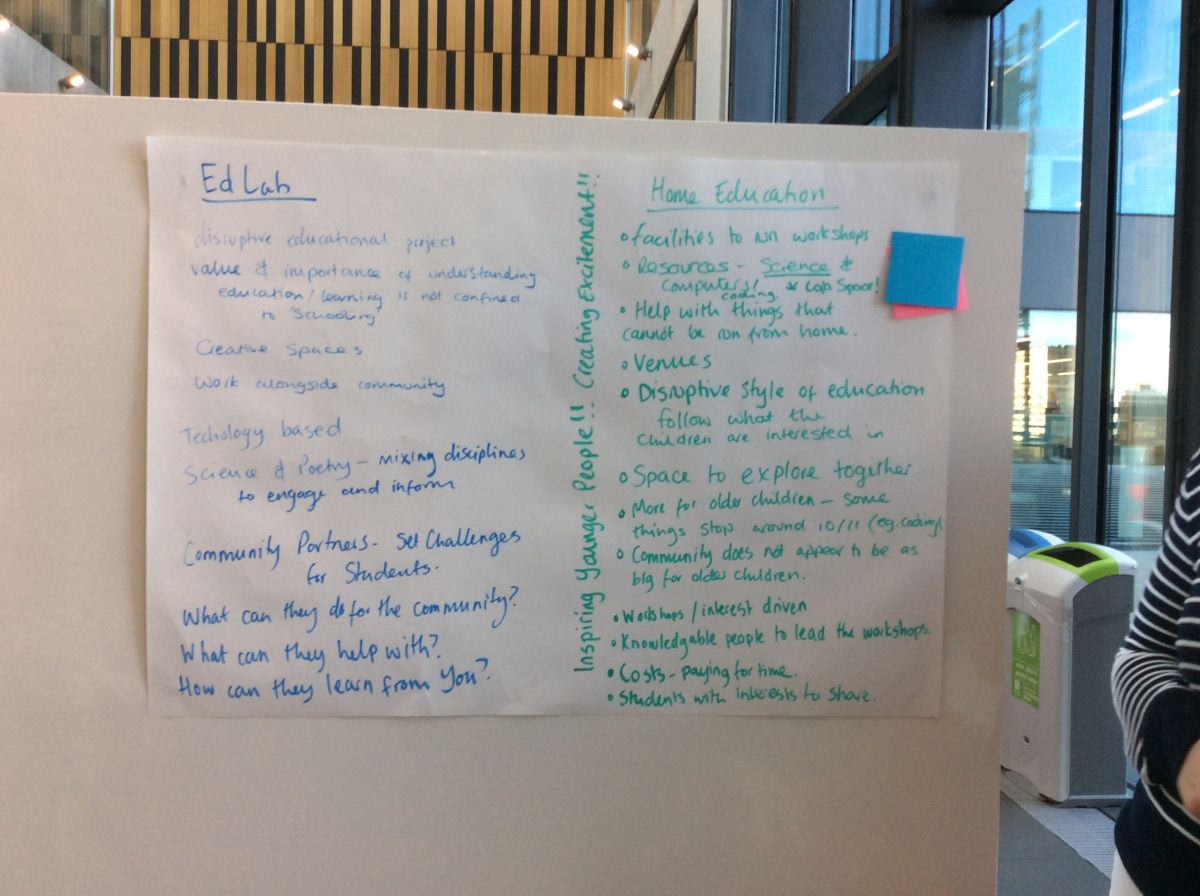 Ed Lab
disruptive educational project
value & importance of understanding
education/learning is not confined
to 'Schooling'
Creative Spaces
Work alongside community
Techology based
Science & Poetry - mixing disciplines
to engage and inform
Community Partners - Set Challenges
for Students.
What can they do for the community?
What can they help with?
How can they learn from You?
Inspiring Younger People!! Creating Excitement!!
Home Education
• facilities to run workshops
• Resources - Science &
Computers/coding. * Lab Space!
• Help with things that
cannot be run from home.
• Venues
• Disruptive Style of education
follow what the
children are interested in
• Space to explore together
• More for older children - Some
things stop around 10/11 (eg. coding)
• Community does not appear to be as
big for older children.
• Workshops / interest driven
• Knowledgable people to lead the workshops.
• Costs - paying for time.
• Students with interests to share.